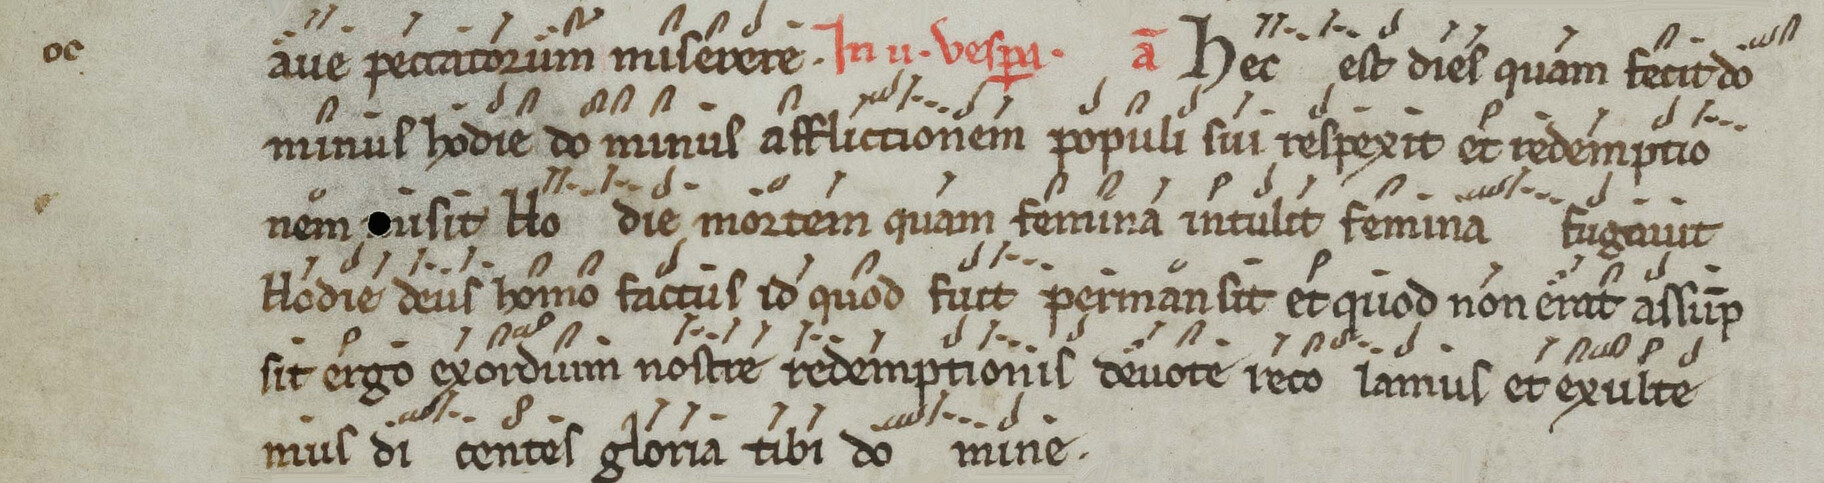 oc
aue peccatorum miserere. In ii. vespa. a Hec est dies quam fecit do
minus hodie do minus afflictionem populi sui respexit et redemptio
nem misit Ho die mortem quam femina intulit femina fugauit
Hodie deus homo factus id quod fuit permansit et quod non erat assūp
sit ergo exordium nostre redemptionis deuote reco lamus et exulte
mus di centes gloria tibi do mine.